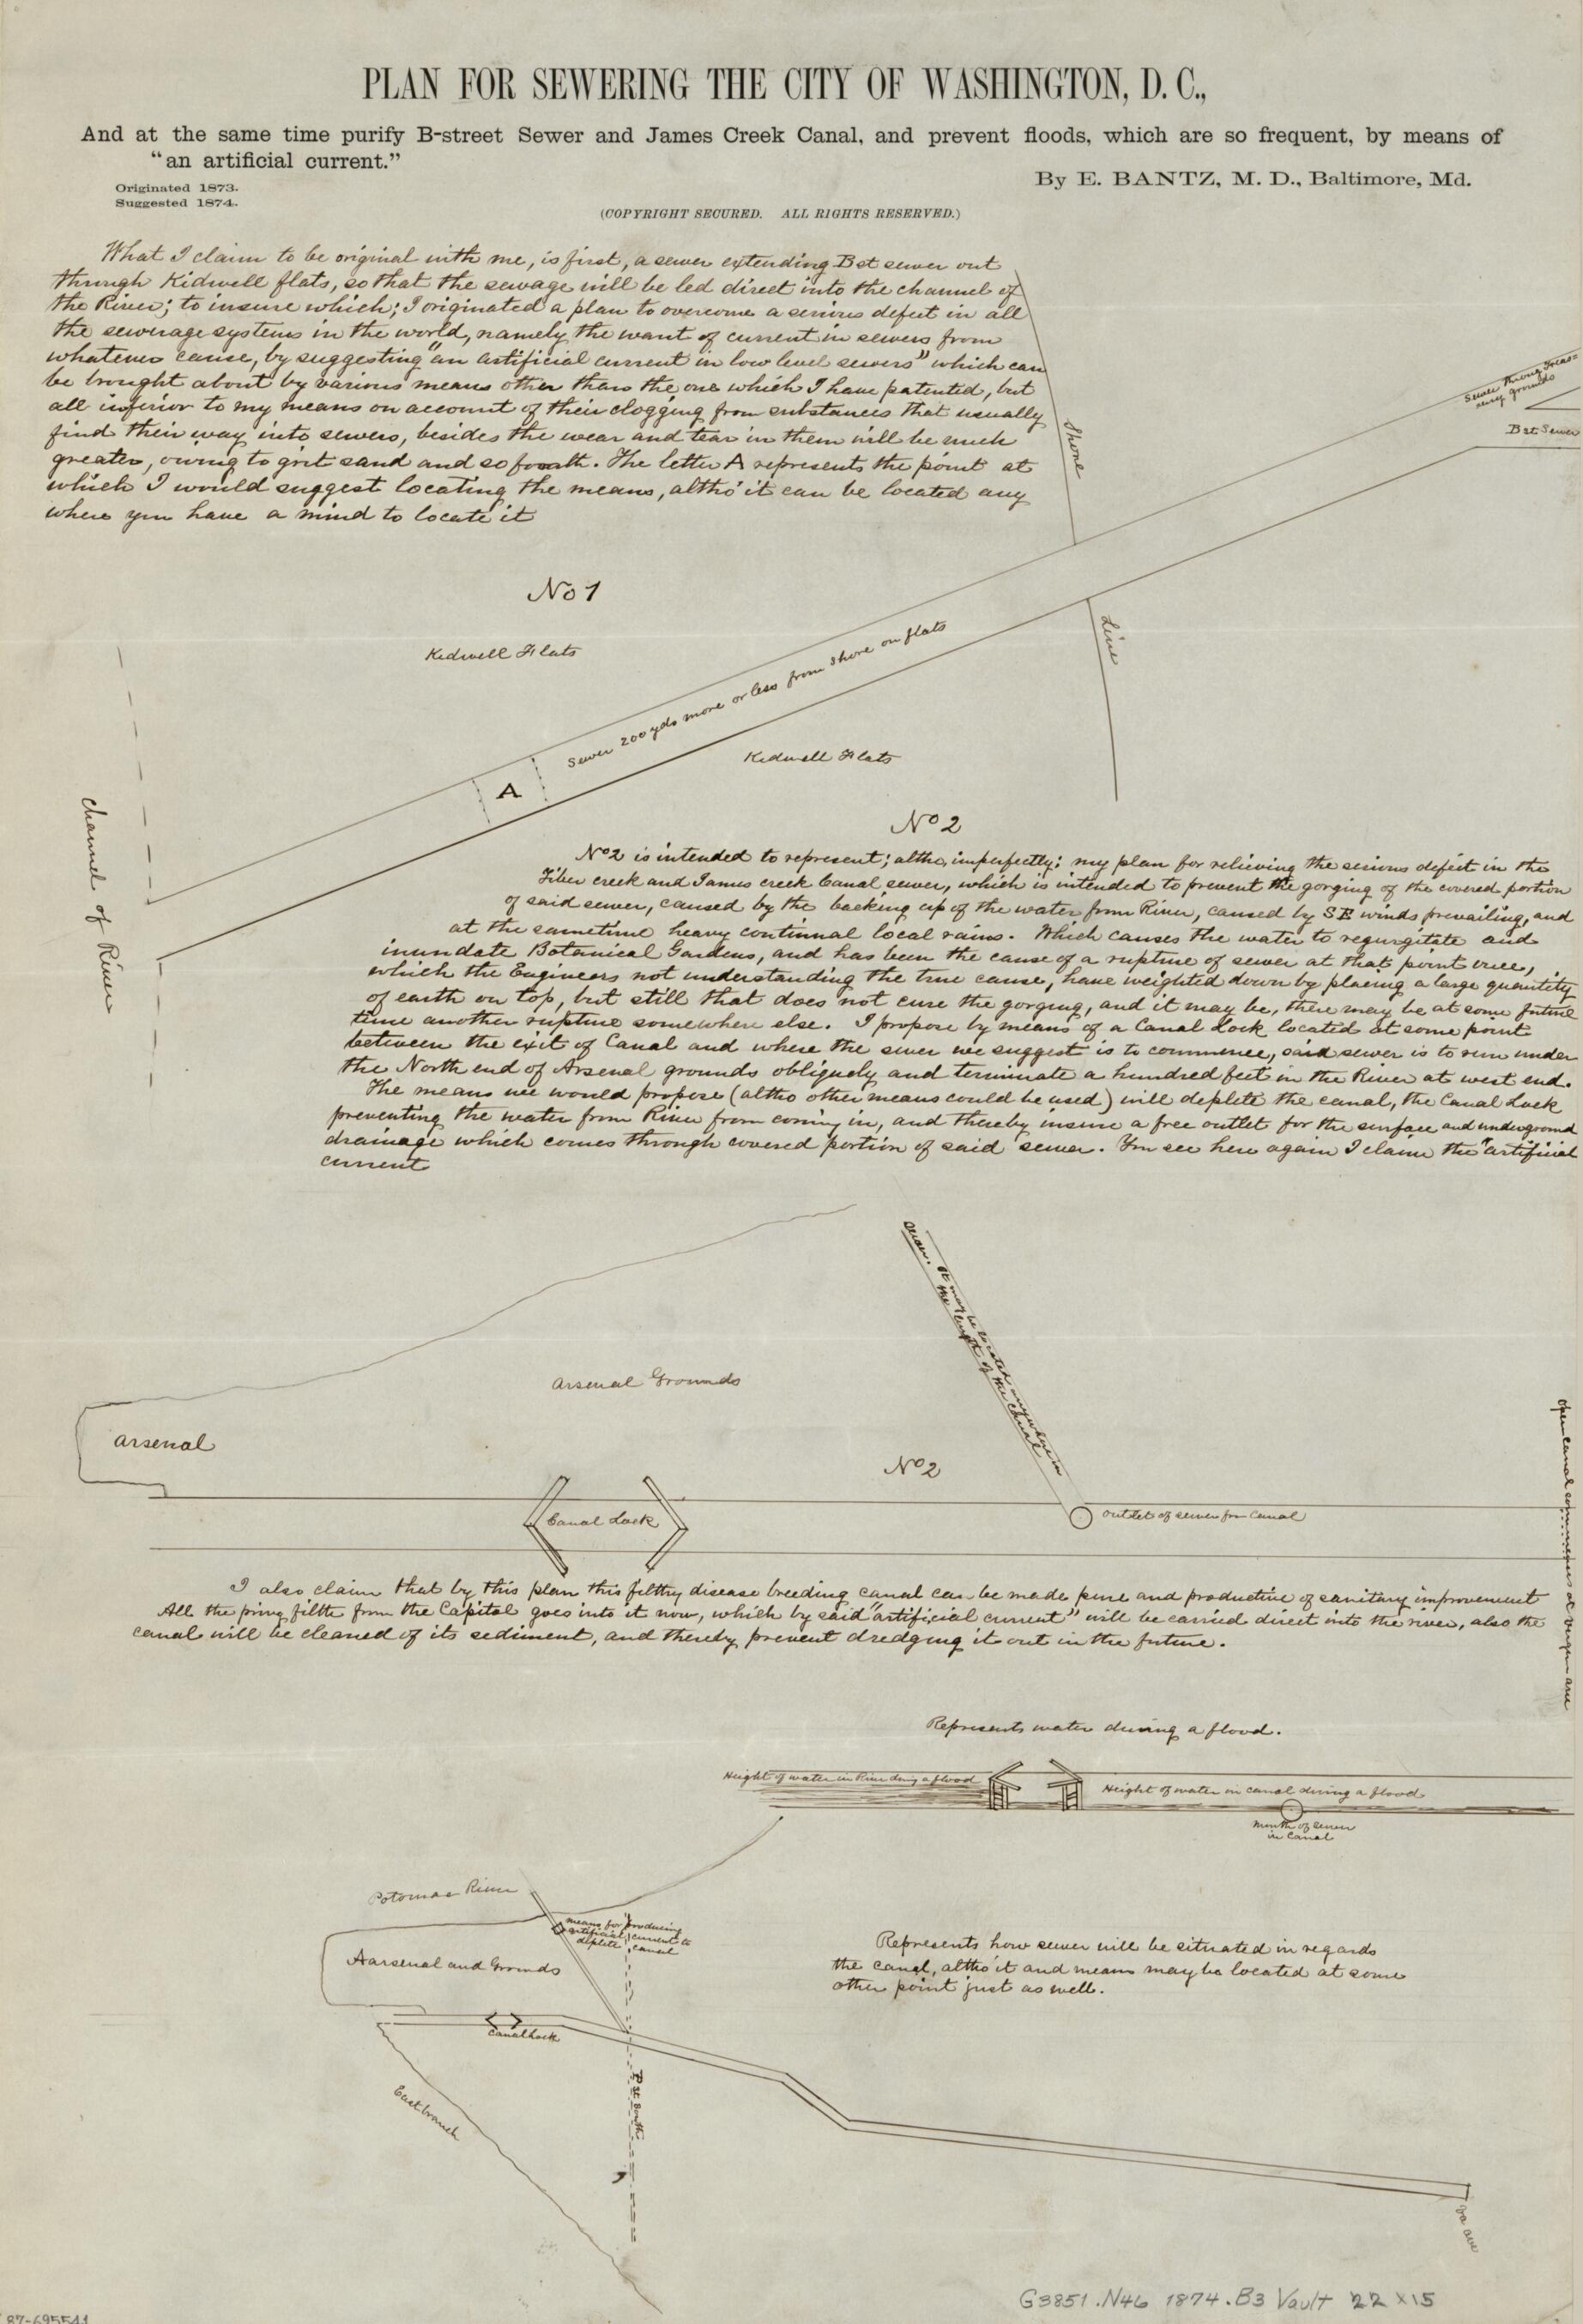 PLAN FOR SEWERING THE CITY OF WASHINGTON, D. C.,
And at the same time purify B-street Sewer and James Creek Canal, and prevent floods, which are so frequent, by means of
“an artificial current.”
Originated 1873.
Suggested 1874.
By E. BANTZ, M. D., Baltimore, Md.
(COPYRIGHT SECURED. ALL RIGHTS RESERVED.)
What I claim to be original with me, is first, a sewer extending B st sewer out
through Kidwell flats, so that the sewage will be led direct into the channel of
the River; to insure which; I originated a plan to overcome a serious defect in all
the sewerage systems in the world, namely the want of current in sewers from
whatever cause, by suggesting "an artificial current in low level sewers" which can
be brought about by various means other than the one which I have patented, but
all inferior to my means on account of their clogging from substances that usually
find their way into sewers, besides the wear and tear in them will be much
greater, owing to grit sand and so forth. The letter A represents the point at
which I would suggest locating the means, altho' it can be located any
where you have a mind to locate it
Shore
Sewer through
grounds
B st Sewer
No 1
Kidwell Flats
Line
Sewer 200 yds more or less from shore on flats
Kidwell Flats
A
channel of River
No 2
No 2 is intended to represent; altho, imperfectly; my plan for relieving the serious defect in the
Tiber creek and James creek Canal sewer, which is intended to prevent the gorging of the covered portion
of said sewer, caused by the backing up of the water from River, caused by SE winds prevailing, and
at the sametime heavy continual local rains. Which causes the water to regurgitate and
inundate Botanical Gardens, and has been the cause of a rupture of sewer at that point,
which the Engineers not understanding the true cause, have weighted down by placing a large quantity
of earth on top, but still that does not cure the gorging, and it may be, there may be at some future
time another rupture somewhere else. I propose by means of a Canal Lock located at some point
between the exit of Canal and where the sewer we suggest is to commence, said sewer is to run under
the North end of Arsenal grounds obliquely and terminate a hundred feet in the River at west end.
The means we would propose (altho other means could be used) will deplete the canal, the Canal Lock
preventing the water from River from coming in, and thereby insure a free outlet for the surface and underground
drainage which comes through covered portion of said sewer. You see here again I claim the "artificial
current
Sewer. It may be located anywhere in
the length of the canal
Arsenal Grounds
Arsenal
No 2
Canal Lock
outlet of sewer from Canal
open canal commences at Virginia ave
I also claim that by this plan this filthy disease breeding canal can be made pure and productive of sanitary improvement
All the filth from the Capitol goes into it now, which by said "artificial current" will be carried direct into the river, also the
canal will be cleaned of its sediment, and thereby prevent dredging it out in the future.
Represents water during a flood.
Height of water in River during a flood
Height of water in canal during a flood
mouth of sewer
in canal
Potomac River
means for producing
artificial current to
deplete canal
Aarsenal and Grounds
Represents how sewer will be situated in regards
the canal, altho' it and means may be located at some
other point just as well.
Canal Lock
East branch
P st South
Va ave
G3851 .N46 1874 .B3 Vault 22 x 15
87-695541